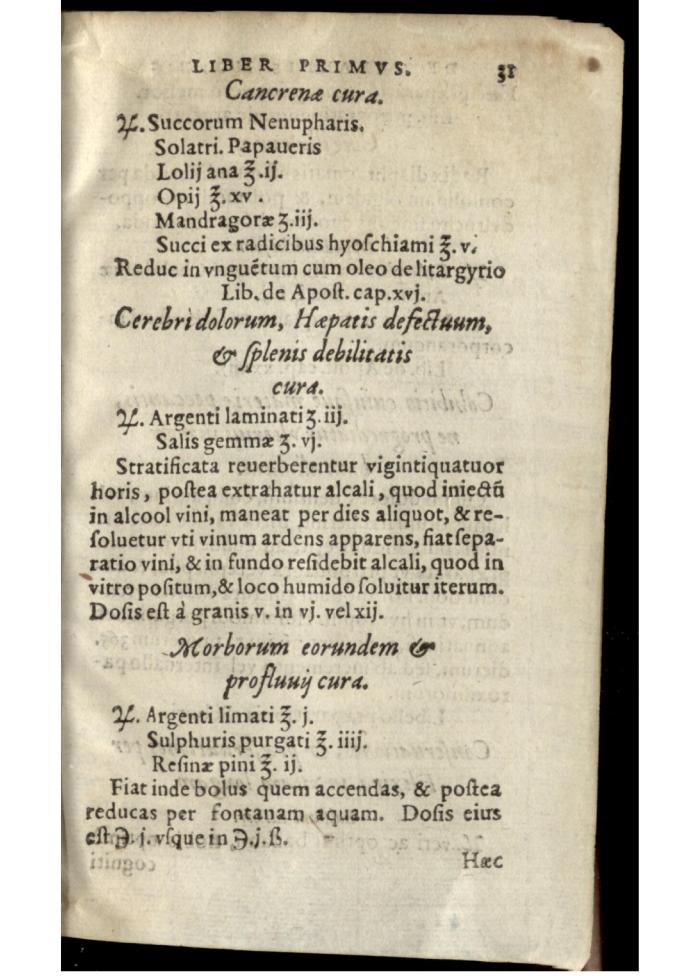 LIBER PRIMVS. 31
Cancrenæ cura.
℞. Succorum Nenupharis.
Solatri. Papaueris
Lolij ana ℥.ij.
Opij ℥.xv.
Mandragoræ ʒ.iij.
Succi ex radicibus hyoſchiami ℥.v.
Reduc in vnguētum cum oleo de litargyrio
Lib. de Apoſt. cap.xvj.
Cerebri dolorum, Hæpatis defectuum,
& ſplenis debilitatis
cura.
℞. Argenti laminati ʒ.iij.
Salis gemmæ ʒ. vj.
Stratificata reuerberentur vigintiquatuor
horis, poſtea extrahatur alcali, quod iniectū
in alcool vini, maneat per dies aliquot, & re-
ſoluetur vti vinum ardens apparens, fiat ſepa-
ratio vini, & in fundo reſidebit alcali, quod in
vitro poſitum, & loco humido ſoluitur iterum.
Doſis eſt à granis v. in vj. vel xij.
Morborum eorundem &
profluuij cura.
℞. Argenti limati ℥. j.
Sulphuris purgati ℥. iiij.
Reſinæ pini ℥. ij.
Fiat inde bolus quem accendas, & poſtea
reducas per fontanam aquam. Doſis eius
eſt ℈. j. vſque in ℈.j.ß.
Hæc